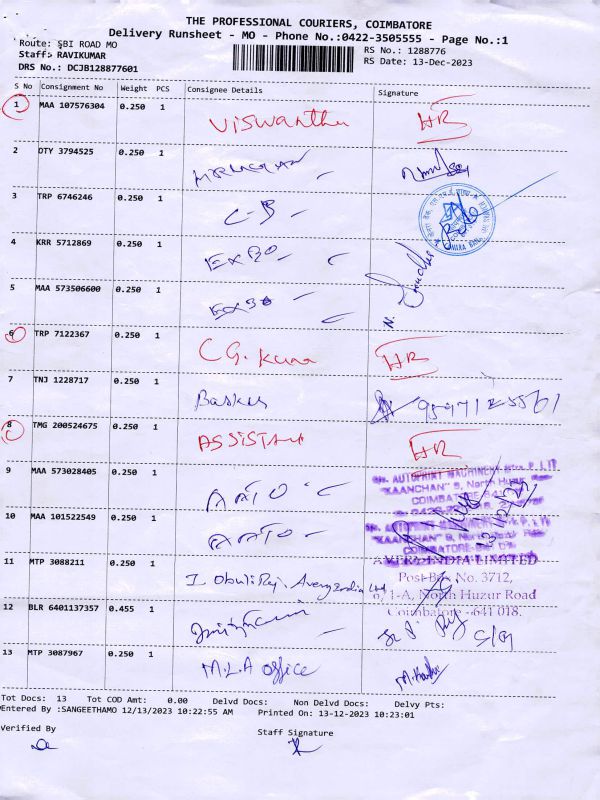 THE PROFESSIONAL COURIERS, COIMBATORE
Delivery Runsheet - MO - Phone No.:0422-3505555 - Page No.:1
Route: SBI ROAD MO
RS No.: 1288776
Staff: RAVIKUMAR
RS Date: 13-Dec-2023
DRS No.: DCJB128877601
S No Consignment No Weight PCS Consignee Details Signature
1 MAA 107576304 0.250 1 Viswantha HR
2 DTY 3794525 0.250 1
3 TRP 6746246 0.250 1 C-B -
4 KRR 5712869 0.250 1 EXBO -
5 MAA 573506600 0.250 1 -
N.
6 TRP 7122367 0.250 1 C G. Kuna HR
7 TNJ 1228717 0.250 1 Baskar
8 TMG 200524675 0.250 1 ASSISTANT HR
9 MAA 573028405 0.250 1 AATO -
AUTOPRINT MACHINERY P. LTD
"KAANCHAN" 9, North Huzur
COIMBATORE
10 MAA 101522549 0.250 1 AATO -
AUTOPRINT
"KAANCHAN" 9, North Huzur
COIMBATORE
11 MTP 3088211 0.250 1 I. Obuli Raj. Avery India Ltd
AVERY INDIA LIMITED
Post Box No. 3712,
6/1-A, North Huzur Road
Coimbatore - 641 018.
12 BLR 6401137357 0.455 1
13 MTP 3087967 0.250 1 M.L.A office
Tot Docs: 13 Tot COD Amt: 0.00 Delvd Docs: Non Delvd Docs: Delvy Pts:
Entered By :SANGEETHAMO 12/13/2023 10:22:55 AM Printed On: 13-12-2023 10:23:01
Verified By Staff Signature